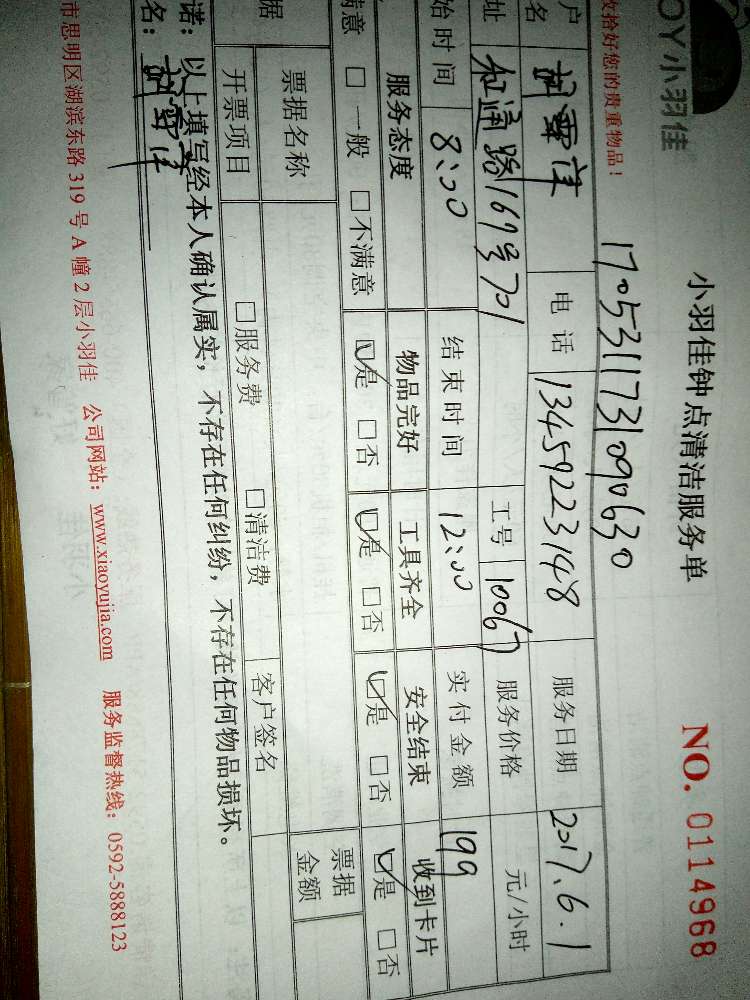 OY小羽佳
小羽佳钟点清洁服务单
NO. 0114968
收拾好您的贵重物品！
170531173109 0630
户名 电话 13459223148 服务日期 2017.6.1
址 红通路169号701 工号 10067 服务价格 元/小时
始时间 8:00 结束时间 12:00 实付金额 199
服务态度 物品完好 工具齐全 安全结束 收到卡片
满意 □一般 □不满意 ☑是 □否 ☑是 □否 ☑是 □否 ☑是 □否
据 票据名称 票据金额
开票项目 □服务费 □清洁费 客户签名
诺：以上填写经本人确认属实，不存在任何纠纷，不存在任何物品损坏。
名：
市思明区湖滨东路319号A幢2层小羽佳 公司网站：www.xiaoyujia.com 服务监督热线：0592-5888123